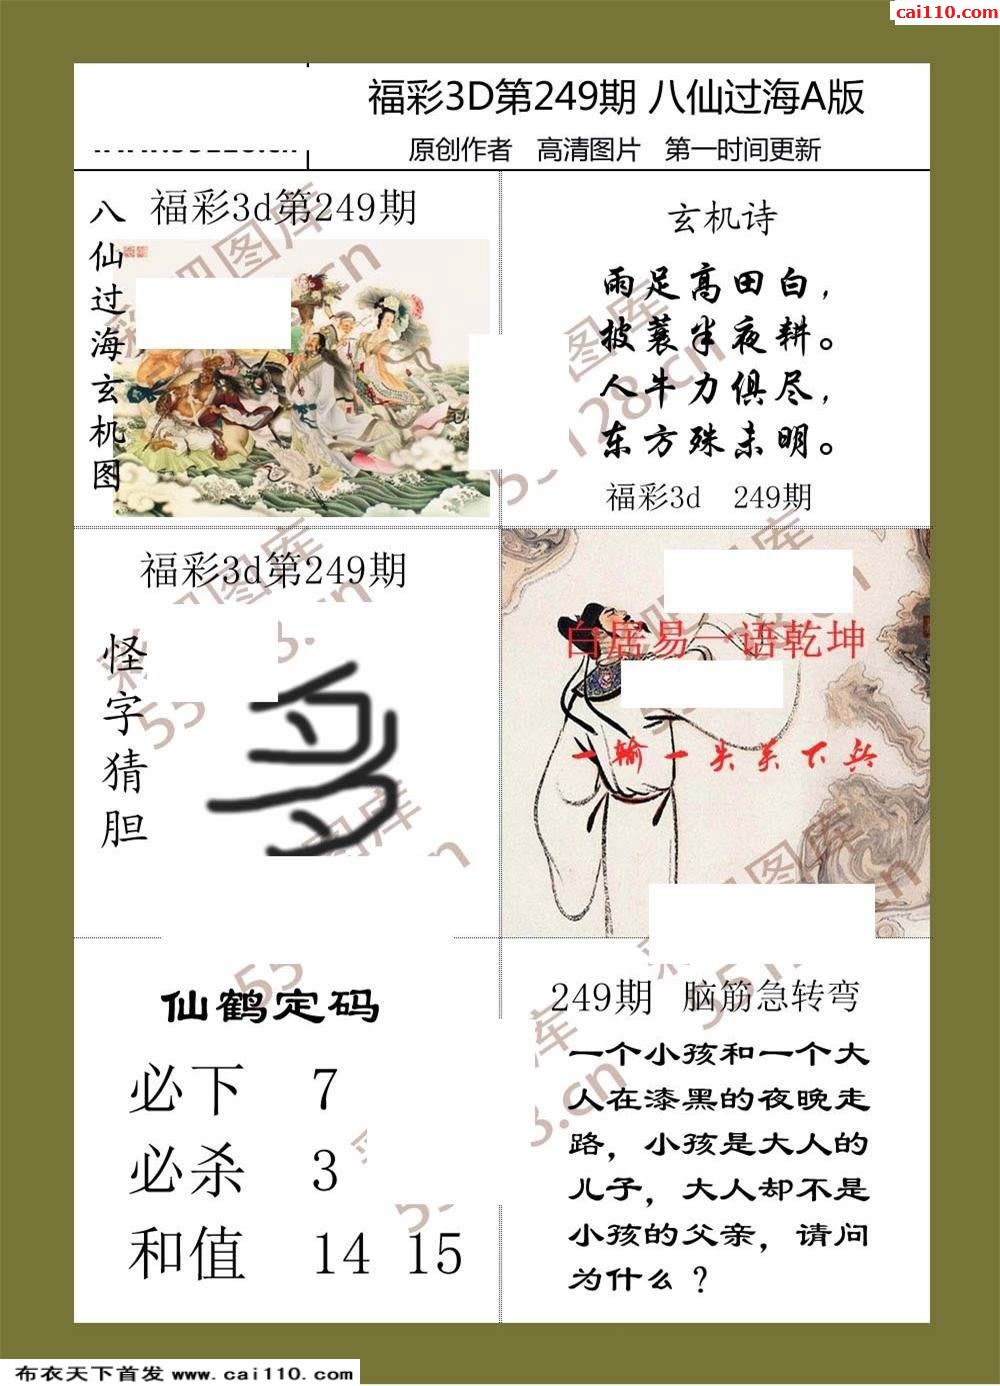 cai110.com
福彩3D第249期 八仙过海A版
原创作者 高清图片 第一时间更新
福彩3d第249期
八仙过海玄机图
玄机诗
雨足高田白，
披蓑半夜耕。
人牛力俱尽，
东方殊未明。
福彩3d 249期
福彩3d第249期
怪字猜胆
白居易一语乾坤
一输一尖关下兵
仙鹤定码
必下 7
必杀 3
和值 14 15
249期 脑筋急转弯
一个小孩和一个大
人在漆黑的夜晚走
路，小孩是大人的
儿子，大人却不是
小孩的父亲，请问
为什么？
布衣天下首发 www.cai110.com